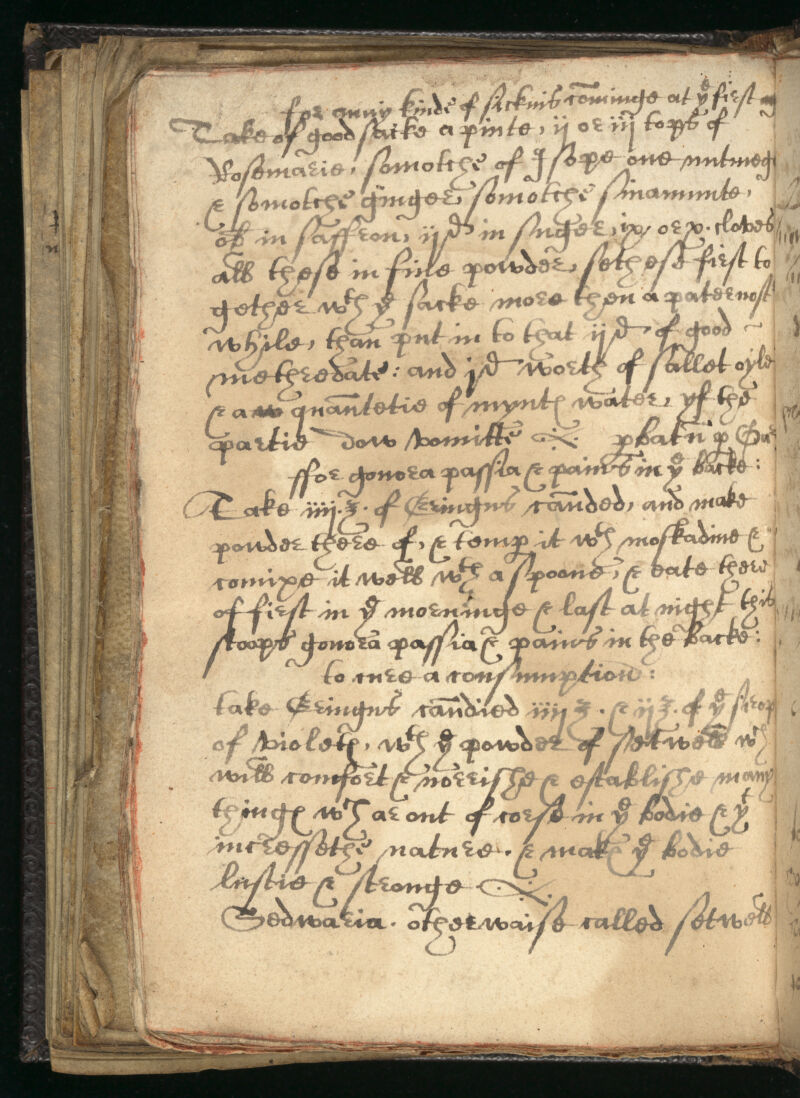 for anny kinde of sicknis cominge at yͤ first
Take of good sacke a pinte, ij or iij tops of
Rosemarie, somotche of Isope one nutmeg
& somotche ginger, somotche sinamunte,
ob in saffron, ijd in suger, ix, or x. cloves
all these in fine powder, sethese first to
gether wth yͤ sacke more then a paternost
while, than put in to that ijd of good
methredate: and jd worth of sallet oyle
& a quantetie of mynt water, yf the
partie dow vomitte pbatū p
ffor gonora passia & pains in yͤ backe:
Take iiij ℥. of Eringus canded, and make
powder there of, & temp it wth moskadine &
comixe it well wth a spoone, & eate there
of first in yͤ morninge & last at night this
stoops gonora passia & pains in the backe:
to cure a consumption:
take Eringus candied iiij ℥. & ij ℥. of yͤ sirop
of violets, wth yͤ powder of setwell wh
will comfort & norrishe & establishe many
things wch ar out of corse in yͤ bodie & yt
incressethe nature. & makes yͤ bodie
lustie & stronge
Sedwaria. otherwaise called setwell